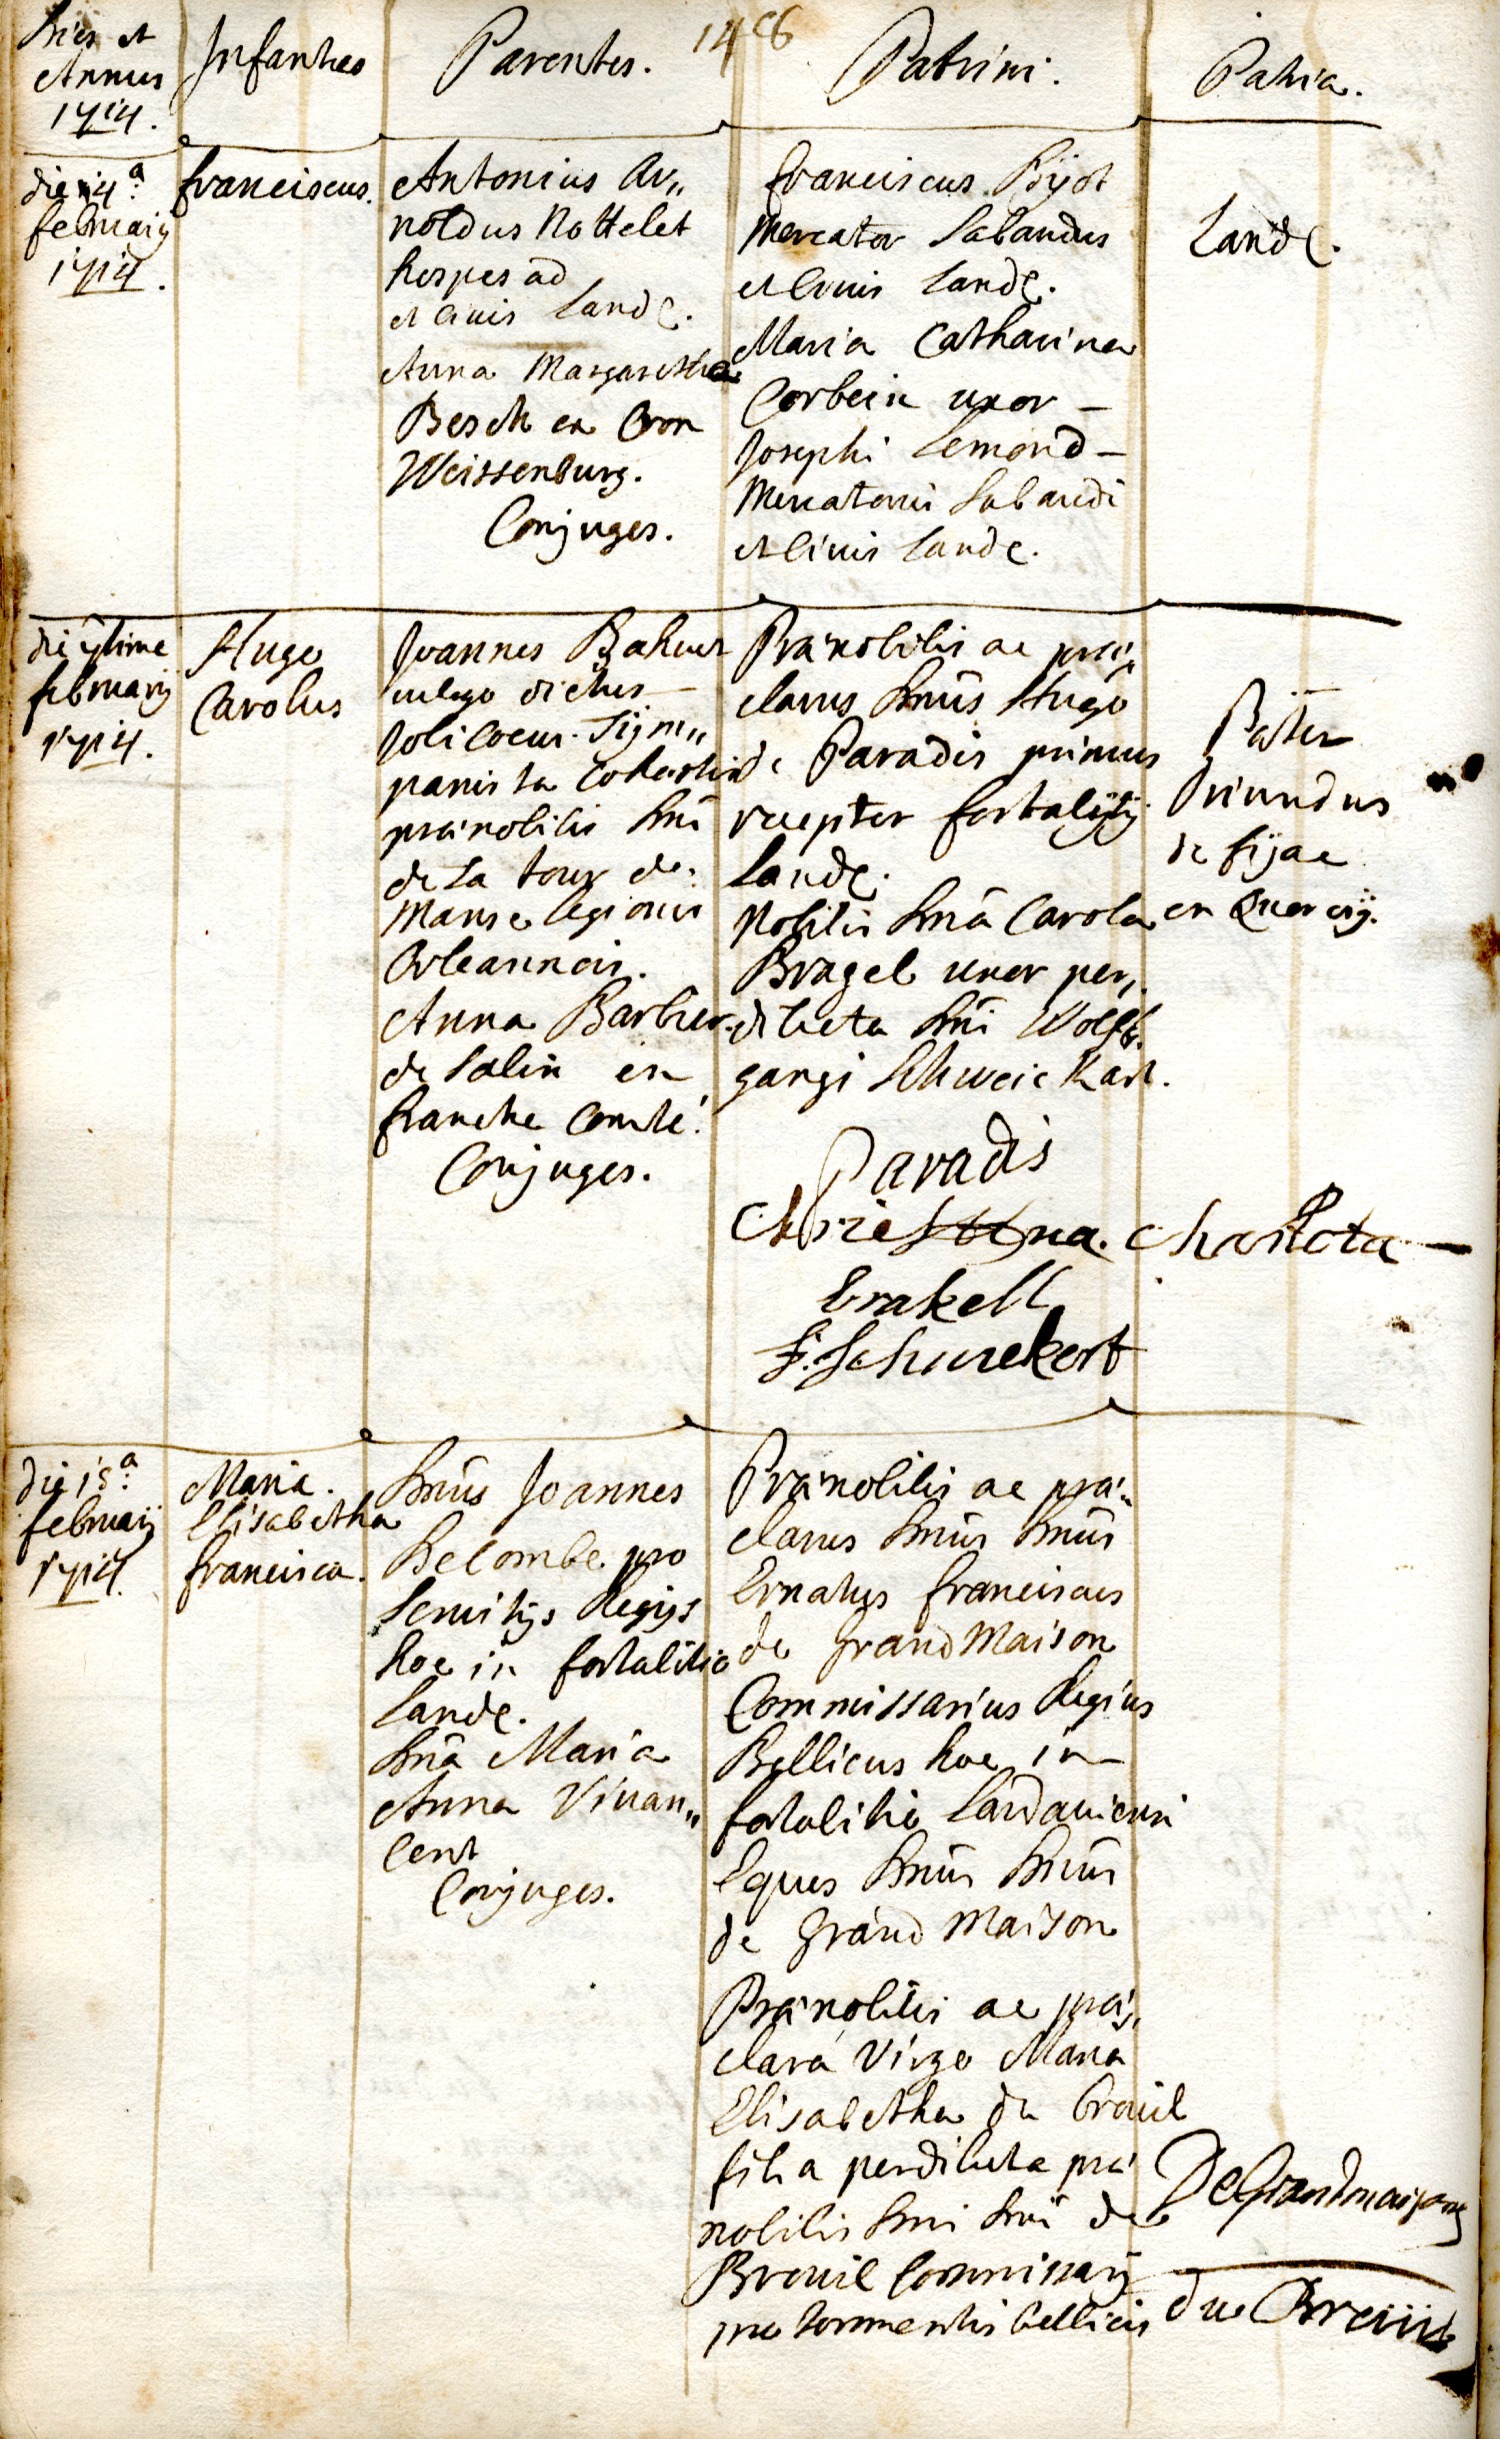 Dies et
Annus
1714.
Infantes
Parentes.
146
Patrini.
Patria.
die 4a
februarij
1714.
franciscus.
Antonius Ar„
noldus Nottelet
hospes ad
et civis Landę.
Anna Margaretha
Besch ex Cron
Weissenburg.
Conjuges.
franciscus Bijot
Mercator Sabaudus
et Civis Landę.
Maria Catharina
Corbein uxor –
Josephi Lemond –
Mercatoris Sabaudi
et Civis Landę.
Landę.
februarij
1714.
Hugo
Carolus
Joannes
vulgo dictus –
Jolicoeur Tÿm„
panista Cohortis
prænobilis Dni
de la tour de
Manse legionis
Orleannois.
Anna Barbier
de Salin en
franche Comté.
Conjuges.
Prænobilis ac præ„
clarus Dnus Hugo
de Paradis primus
receptor fortalitij
Landę.
Nobilis Dna Carola
Bragel uxor per„
dilecta Dni Wolff„
gangi Schweickart.
Paradis
Christina. Charlota –
Brakell
S. Schweickert
Pater
Oriundus
de fijac
en Quercij.
die 15a
februarij
1714.
Maria.
Elisabetha
francisca.
Dnus Joannes
Delombe pro
Servitijs Regijs
hoc in fortalitio
Landę.
Dna Maria
Anna Vivan„
cent
Conjuges.
Prænobilis ac præ„
clarus Dnus Dnus
Ernatus franciscus
de Grand Maison
Commissarius Regius
Bellicus hoc in –
fortalitio Landaviensi
Eques Dnus Dnus
de Grand Maison
Prænobilis ac præ„
clara Virgo Maria
Elisabetha du Breüil
filia perdilecta præ
nobilis Dni Dni de
Breuil Commissarij
pro tormentis bellicis
De Grandmaison
du Breüil